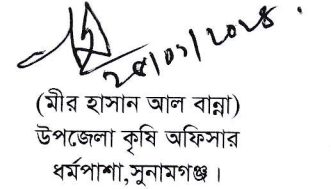 ২৫/০১/২০২৪
(মীর হাসান আল বান্না)
উপজেলা কৃষি অফিসার
ধর্মপাশা,সুনামগঞ্জ।